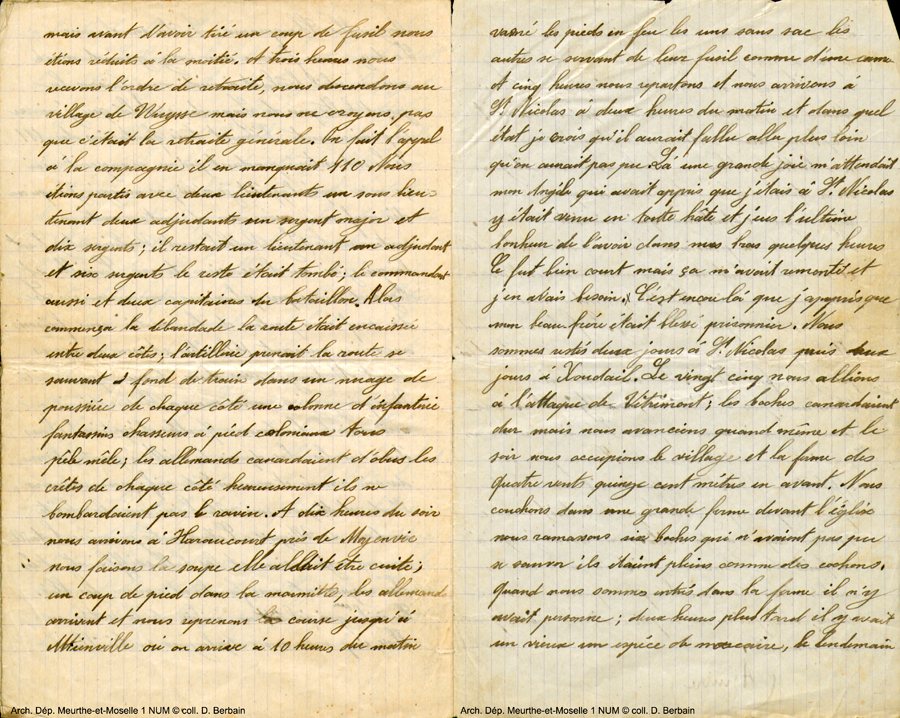 mais avant d'avoir tiré un coup de fusil nous
étions réduits à la moitié. A trois heures nous
recevons l'ordre de retraite, nous descendons au
village de mais nous ne croyons pas
que c'était la retraite générale. On fait l'appel
à la compagnie il en manquait 110 Nous
étions partis avec deux lieutenants un sous lieu-
tenant deux adjudants un sergent major et
dix sergents ; il restait un lieutenant un adjudant
et six sergents le reste était tombé ; le commandant
aussi et deux capitaines du bataillon. Alors
commença la débandade la route était encaissée
entre deux côtes ; l'artillerie prenait la route se
sauvant à fond de train dans un nuage de
poussière de chaque côté une colonne d'infanterie
fantassins chasseurs à pied coloniaux tous
pêle mêle ; les allemands canardaient d'obus les
crêtes de chaque côté heureusement ils ne
bombardaient pas le ravin. A dix heures du soir
nous arrivons à Haraucourt près de Moyenvic
nous faisons la soupe elle allait être cuite ;
un coup de pied dans la marmitte, les allemands
arrivent et nous reprenons la course jusqu'à
où on arrive à 10 heures du matin
les pieds en feu les uns sans sac les
autres se servant de leur fusil comme d'une canne
A cinq heures nous repartons et nous arrivons à
St Nicolas à deux heures du matin et dans quel
état je crois qu'il aurait fallu aller plus loin
qu'on aurait pas pu Là une grande joie m'attendait
mon Angèle qui avait appris que j'étais à St Nicolas
y était venu en toute hâte et j'eus l'ultime
bonheur de l'avoir dans mes bras quelques heures
Ce fut bien court mais ça m'avait remonté et
j'en avais besoin. C'est encore là que j'appris que
mon beau frère était blessé prisonnier. Nous
sommes restés deux jours à St Nicolas puis deux
jours à . Le vingt cinq nous allions
à l'attaque de Vitrimont ; les boches canardaient
dur mais nous avancions quand même et le
soir nous occupions le village et la ferme des
quatre vents quinze cent mètres en avant. Nous
couchons dans une grande ferme devant l'église
nous ramassons six boches qui n'avaient pas pu
se sauver ils étaient pleins comme des cochons.
Quand nous sommes entrés dans la ferme il n'y
avait personne ; deux heures plus tard il y avait
un vieux un espèce de , le lendemain
Arch. Dép. Meurthe-et-Moselle 1 NUM © coll. D. Berbain
Arch. Dép. Meurthe-et-Moselle 1 NUM © coll. D. Berbain